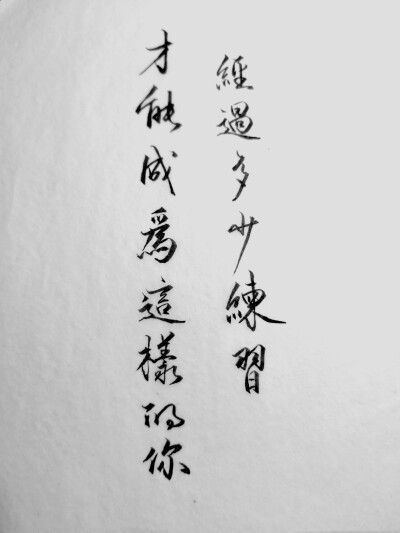 經過多少練習
才能成爲這樣的你